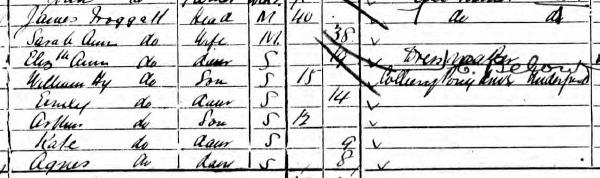 James Froggatt Head M 40 do do
Sarah Ann do Wife M 38
Elizth Ann do daur S 19 Dressmaker
William Hy do Son S 15 Colliery Pony
Emily do daur S 14
Arthur do Son S 12
Kate do daur S 9
Agnes do daur S 8